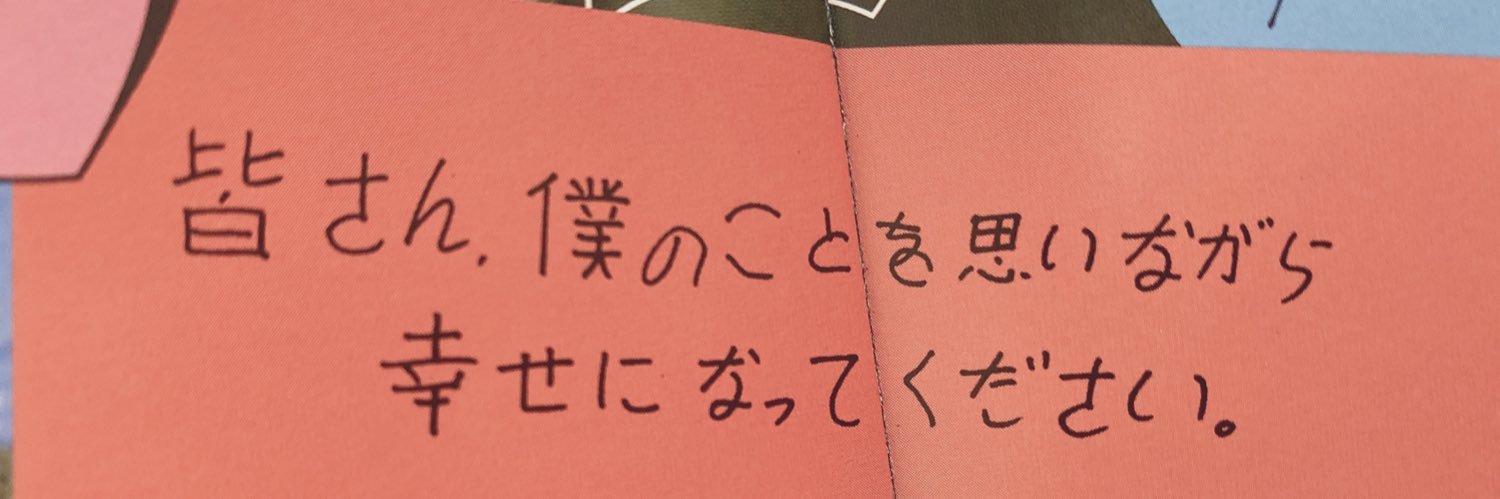 皆さん、僕のことを思いながら
幸せになってください。